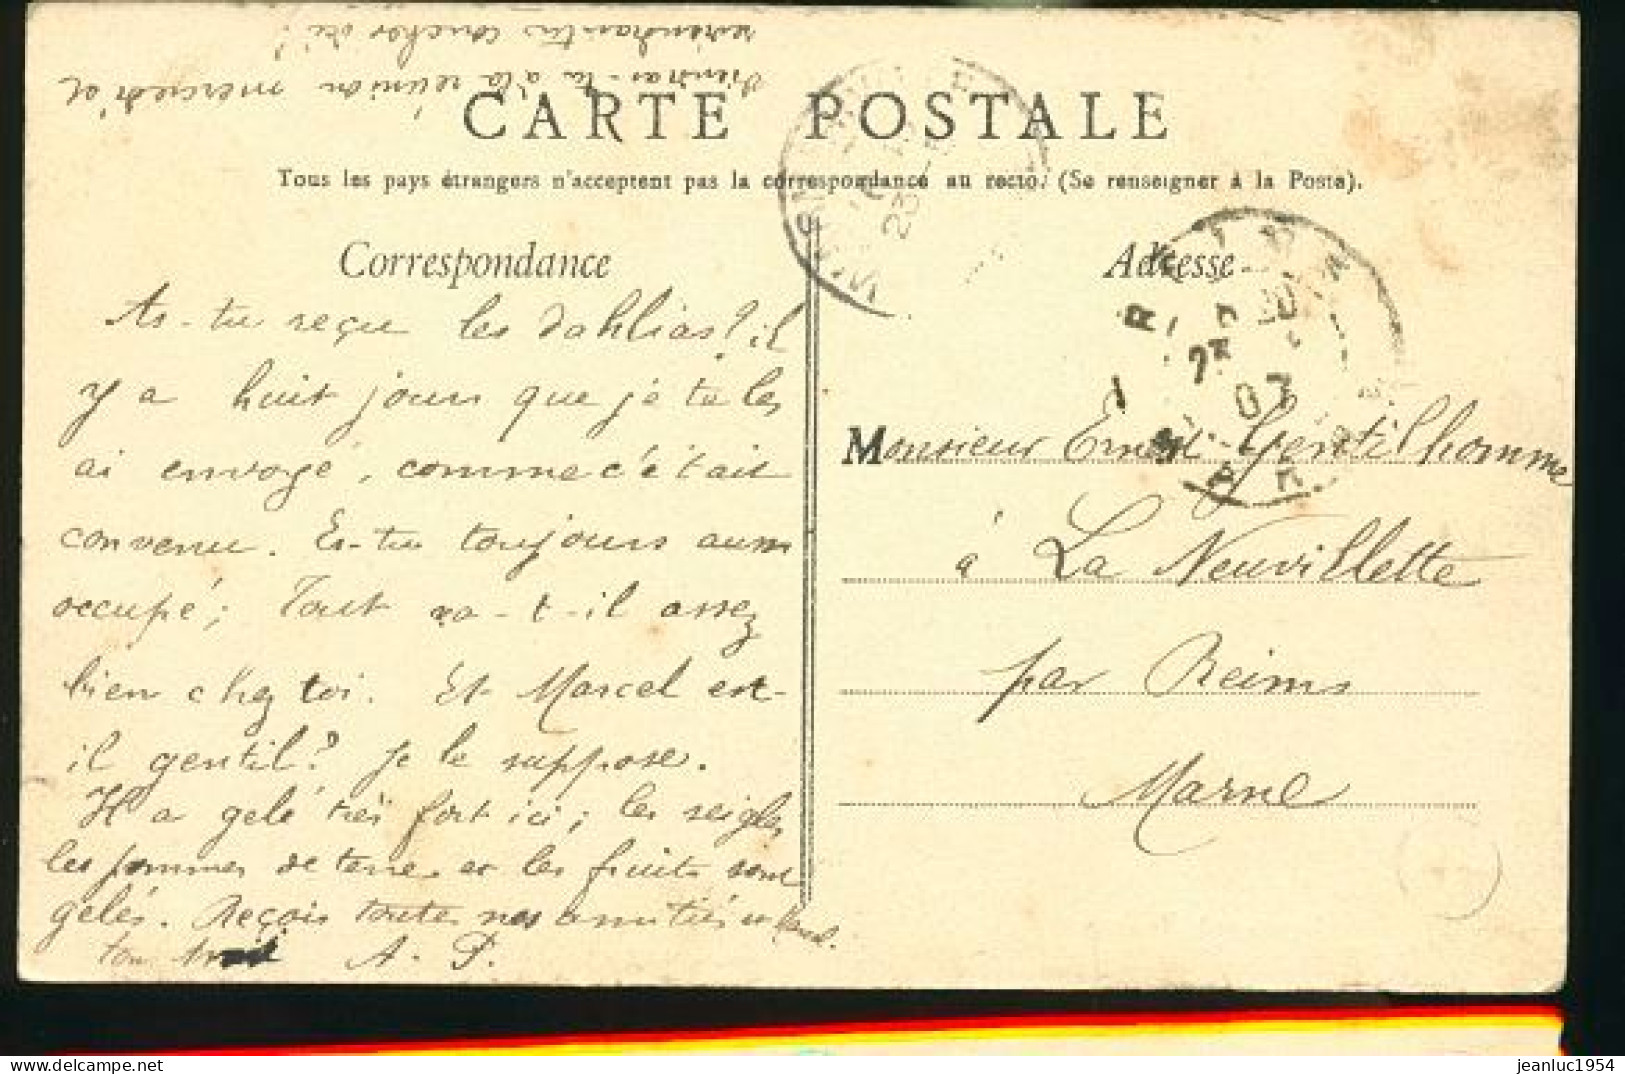 Viendras-tu à la réunion mercredi et
reviendras-tu coucher ici?
CARTE POSTALE
Tous les pays étrangers n'acceptent pas la correspondance au recto. (Se renseigner à la Poste).
Correspondance
As-tu reçu les dahlias? il
y a huit jours que je te les
ai envoyé, comme c'était
convenu. Es-tu toujours aussi
occupé; Tout va-t-il assez
bien chez toi. Et Marcel est-
il gentil? je le suppose.
Il a gelé très fort ici; les seigles
les pommes de terre et les fruits sont
gelés. Reçois toutes nos amitiés et
ton A. P.
Adresse
Monsieur Ernest Gentilhomme
à La Neuvillette
par Reims
Marne
23
07
jeanluc1954